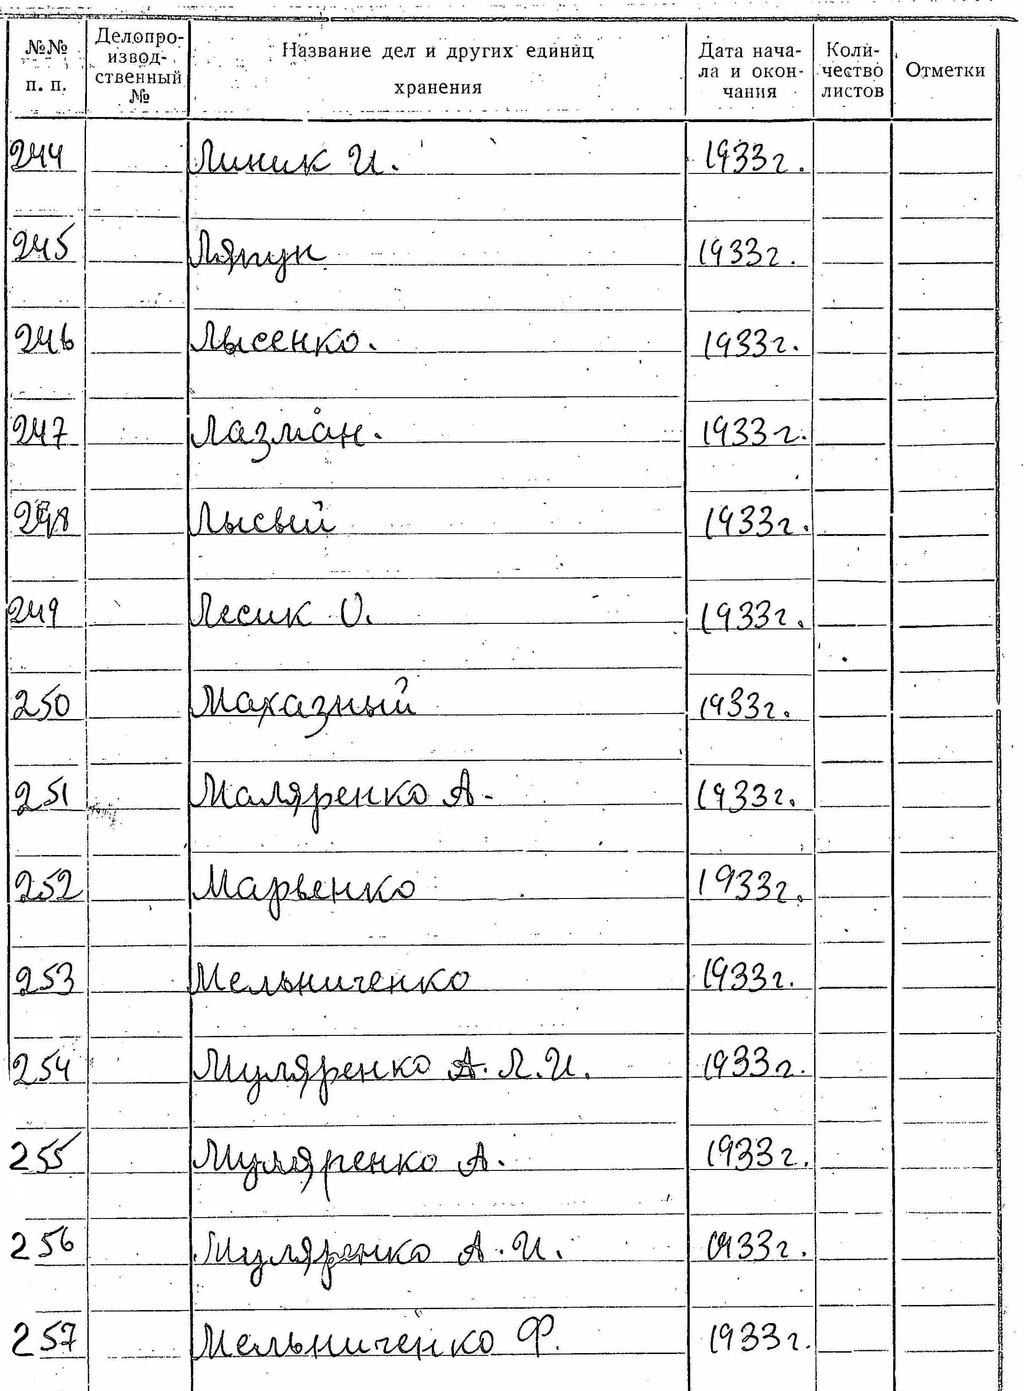 №№ п. п. Делопро-извод-ственный № Название дел и других единиц хранения Дата нача-ла и окон-чания Коли-чество листов Отметки
244 Линик И. 1933г.
245 Ляпун 1933г.
246 Лысенко. 1933г.
247 Лазман. 1933г.
248 Лысвий 1933г.
249 Лесик О. 1933г.
250 Махазный 1933г.
251 Маляренко А. 1933г.
252 Марвенко 1933г.
253 Мельниченко 1933г.
254 Муляренко А.Л.И. 1933г.
255 Муляренко А. 1933г.
256 Муляренко А.И. 1933г.
257 Мельниченко Ф. 1933г.